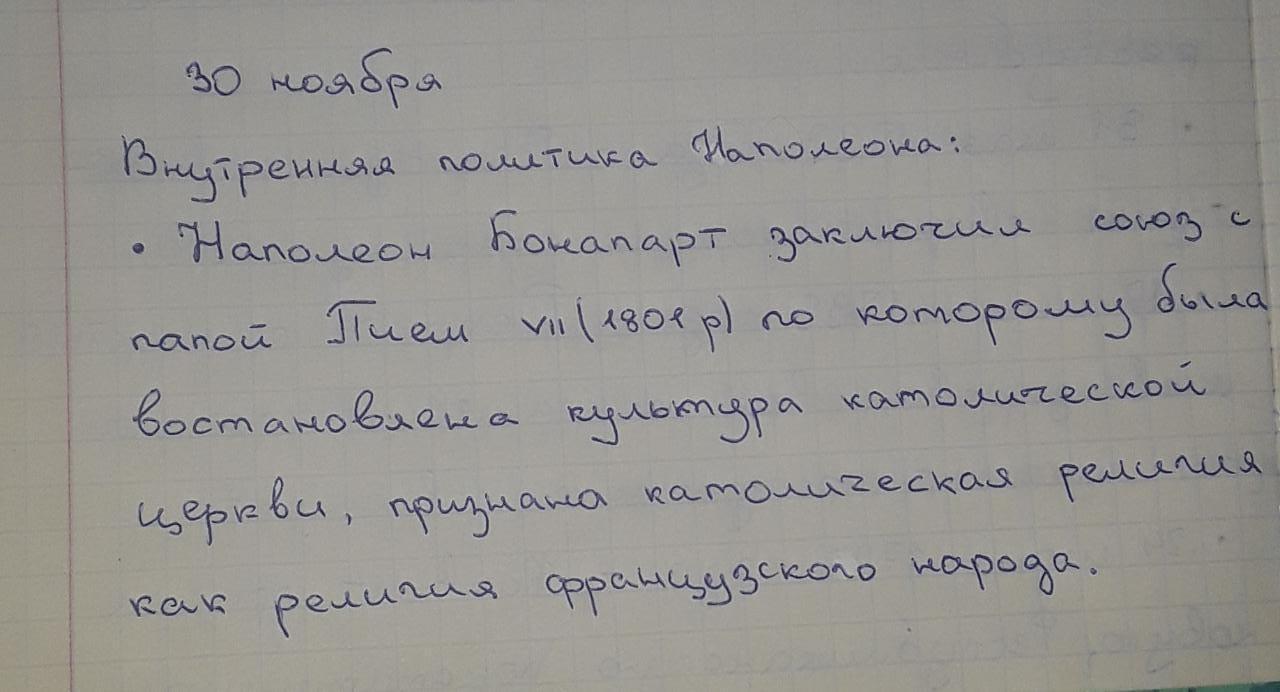 30 ноября
Внутренняя политика Наполеона:
• Наполеон Бонапарт заключил союз с
папой Пием VII (1801 р) по которому была
востановлена культура католической
церкви, признана католическая религия
как религия французского народа.